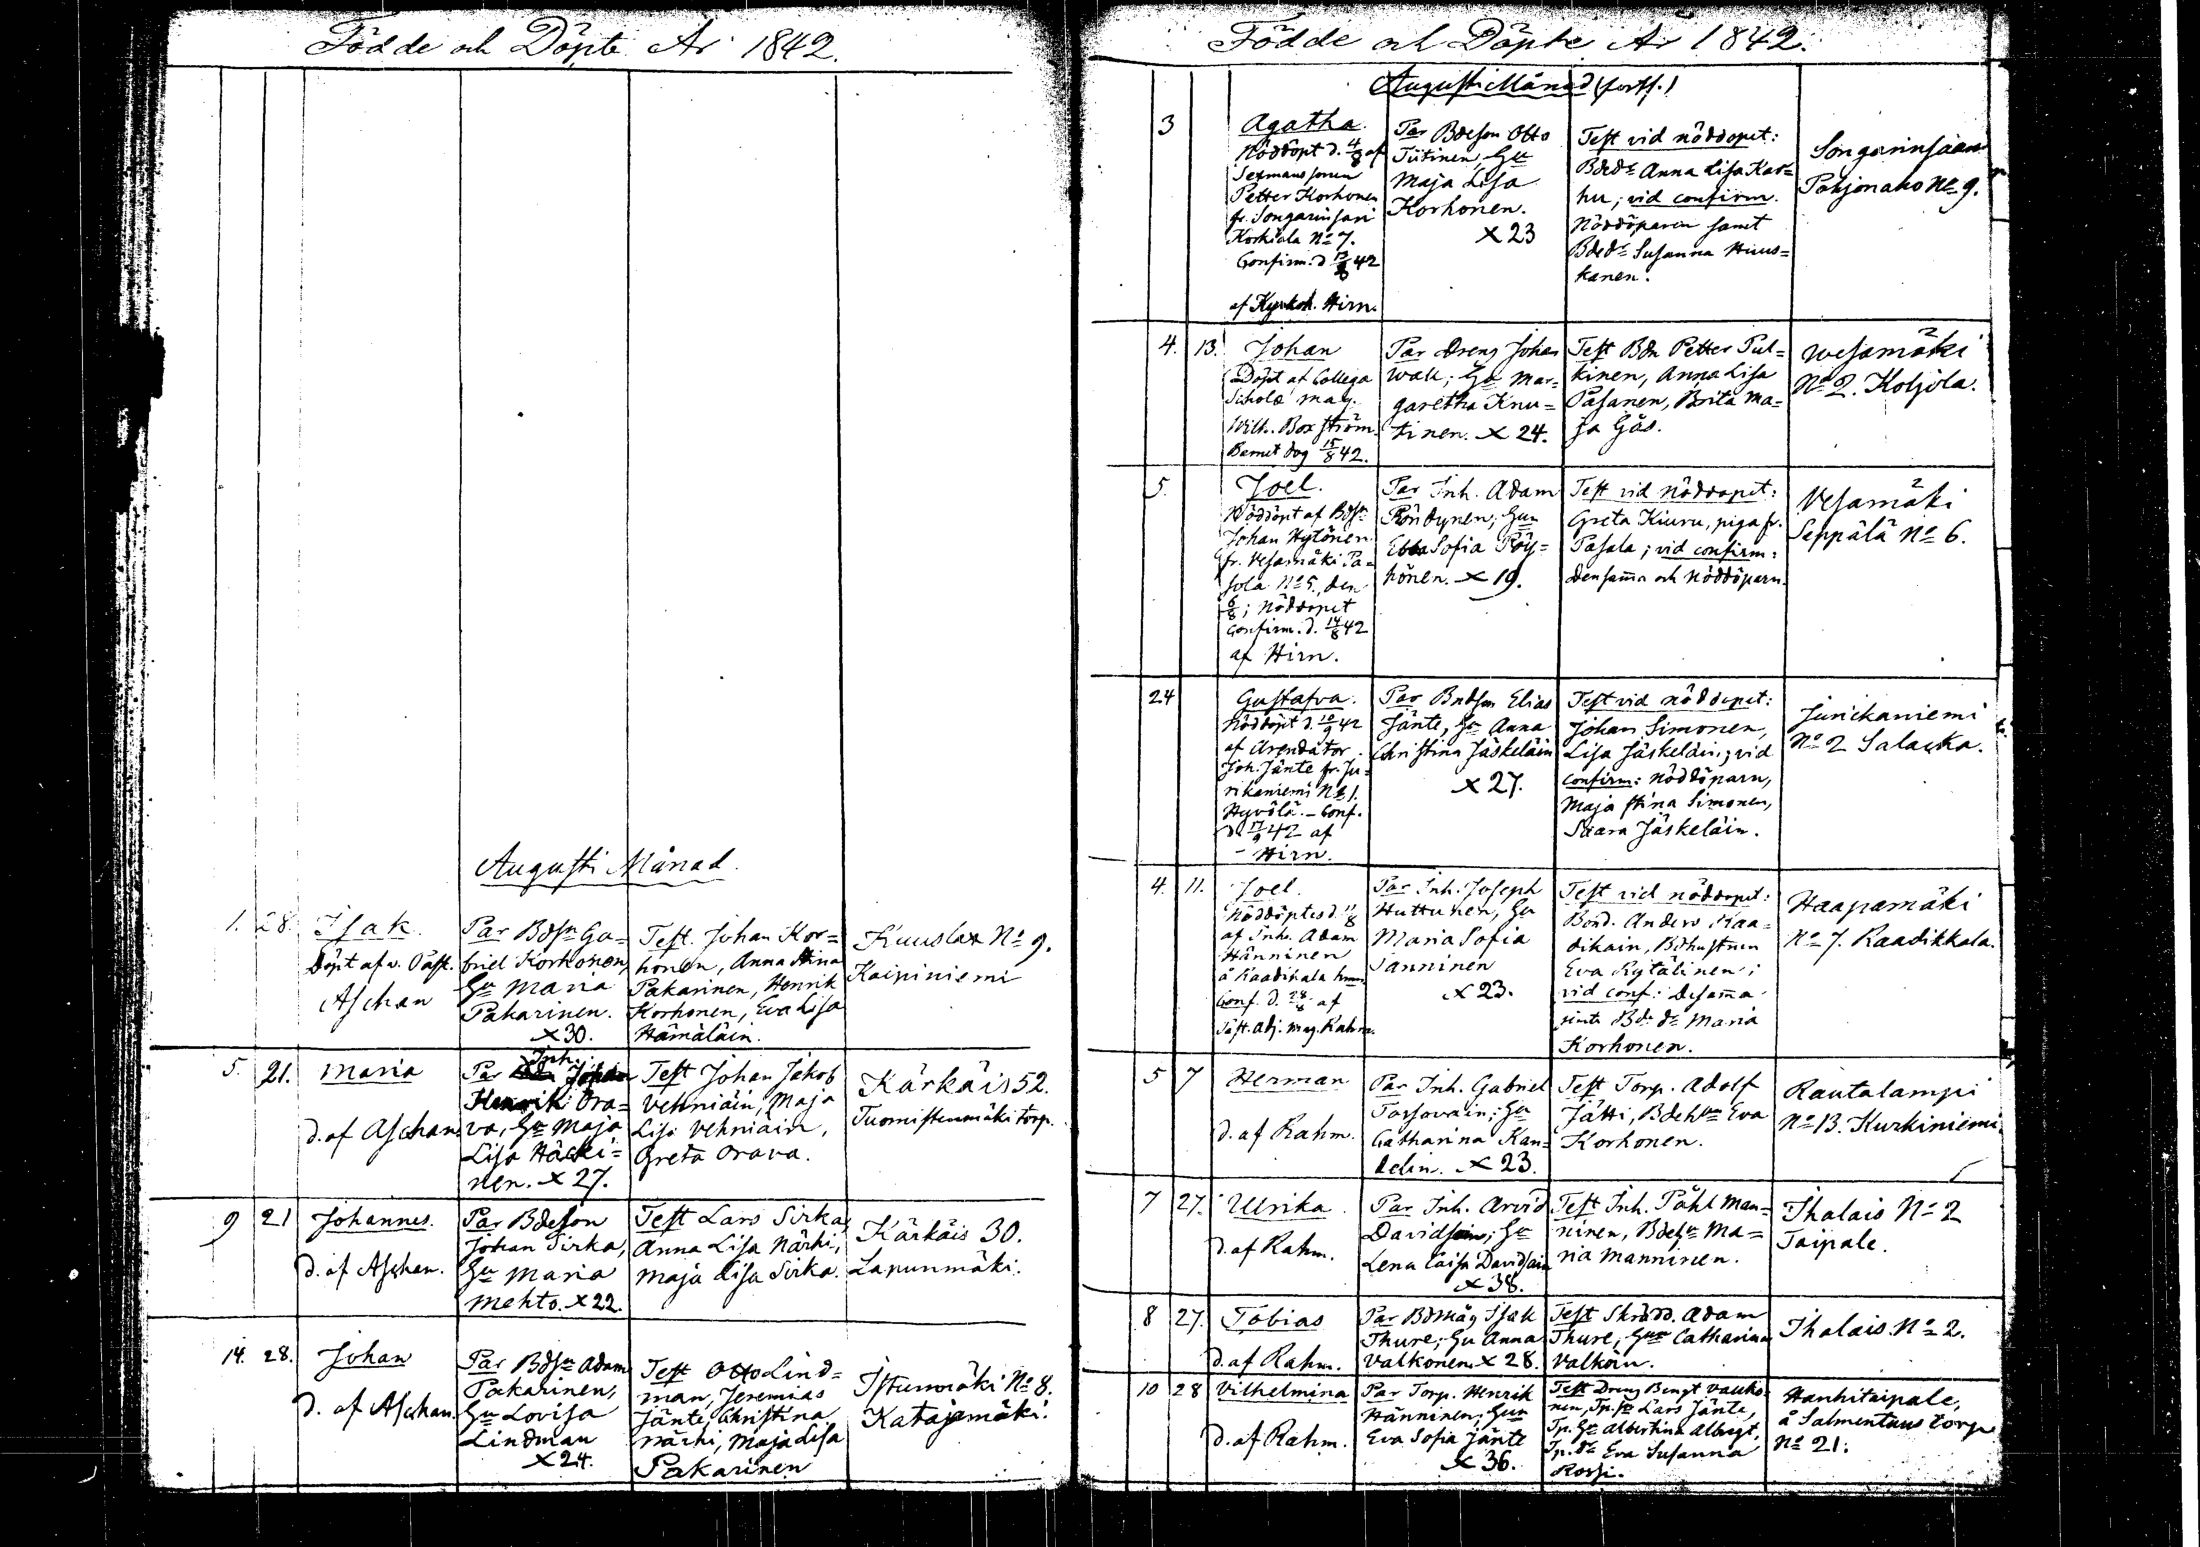 Födde och Döpte År 1842.
Augusti Månad.
1. 28. Isak.
Döpt af v. Past.
Aschan
Par Bdsn Ga=
briel Korhonen,
Hu Maria
Pakarinen.
x 30.
Test. Johan Kor=
honen, Anna Stina
Pakarinen, Henrik
Korhonen, Eva Lisa
Hämäläin.
Kuuslax No 9.
Kaipiniemi
5. 21. Maria
d. af Aschan
Par Inh.
Henrik Ora=
va, Hu Maja
Lisa Häcki=
nen. x 27.
Test Johan Jakob
Vehniäin, Maja
Lisa Vehniäin,
Greta Orava.
Kärkäis 52.
Tuomistenmäki torp.
9 21 Johannes.
d. af Aschan.
Par Bdeson
Johan Sirka,
Hu Maria
Mehto. x 22.
Test Lars Sirka,
Anna Lisa Närhi,
Maja Lisa Sirka.
Kärkäis 30.
Lapunmäki.
14. 28. Johan
d. af Aschan.
Par Bdsn Adam
Pakarinen,
Hu Lovisa
Lindman
x 24.
Test Otto Lind=
man, Jeremias
Jänte, Christina
Närhi, Maja Lisa
Pakarinen
Istunmäki No 8.
Katajamäki.
Födde och Döpte År 1842.
Augusti Månad (forts.)
3 Agatha.
Nöddöpt d. 4/8 af
Sexmanssonen
Petter Korhonen
fr. Songarinsari
Korkiala No 7.
Confirm. d 42
af Kyrkoh. Hirn.
Par Bdeson Otto
Tiitinen, Hu
Maja Lisa
Korhonen.
x 23
Test vid nöddopet:
Bdedr Anna Lisa Kar=
hu; vid confirm.
Nöddöparen samt
Bdedr Susanna Huus=
kanen.
Songarinsaari
Pohjonaho No 9.
4. 13. Johan
Döpt af Collega
Scholæ Mag.
Wilh. Boxström.
Barnet dog 15/8 42.
Par Dreng Johan
Wall; Hu Mar=
garetha Knu=
tinen. x 24.
Test Bdn Petter Pul=
kinen, Anna Lisa
Pasanen, Brita Ma=
ja Gås.
Wesamäki
No 2. Koljola.
5. Joel.
Nöddöpt af Bdsn
Johan Hytönen
fr. Vesamäki Pa=
sola No 5., den
6/8; Nöddopet
Confirm. d. 14/8 42
af Hirn.
Par Inh. Adam
Pöndynen; Hun
Ebba Sofia Pöy=
hönen. x 19.
Test vid nöddopet:
Greta Kiuru, piga fr.
Pasala; vid confirm:
Densama och nöddöparn.
Vesamäki
Seppälä No 6.
24 Gustafva.
Nöddöpt d. 10/9 42
af Arendator
Joh. Jänte fr. Ju=
rikaniemi No 1.
Hyvölä. – Conf.
d. 17/9 42 af
– Hirn.
Par Bndson Elias
Jänte, Hu Anna
Christina Jäskeläin
x 27.
Test vid nöddopet:
Johan Simonen,
Lisa Jäskeläin; vid
confirm: nöddöparn,
Maja Stina Simonen,
Saara Jäskeläin.
Jurickaniemi
No 2 Salacka.
4. 11. Joel.
Nöddöptes d. 11/8
af Inh. Adam
Hänninen
å Kaadikala hmn
Conf. d. 28/8 af
Past. Adj. Mag. Rahm.
Par Inh. Joseph
Huttunen, Hu
Maria Sofia
Janninen
x 23.
Test vid nöddopet:
Bond. Anders Kaa=
dikain, Bdhustrun
Eva Kytälinen;
vid conf: Desama
jemte Bde dr Maria
Korhonen.
Haapamäki
No 7. Kaadikkala.
5 7 Herman
d. af Rahm.
Par Inh. Gabriel
Tarsovain; Hu
Catharina Kan=
delin. x 23.
Test Torp. Adolf
Jätti, Bdehn Eva
Korhonen.
Rautalampi
No 13. Kurkiniemi.
7 27. Ulrika
d. af Rahm.
Par Inh. Arvid
Davidsain; Hu
Lena Caisa Davidsain
x 38.
Test Inh. Påhl Man=
ninen, Bdehu Ma=
ria Manninen.
Ihalais No 2
Taipale.
8 27. Tobias
d. af Rahm.
Par Bdmåg Isak
Thure; Hu Anna
Valkonen. x 28.
Test Skrädd. Adam
Thure; Hun Catharina
Valkoin.
Ihalais. No 2.
10 28 Vilhelmina
d. af Rahm.
Par Torp. Henrik
Hänninen; Hun
Eva Sofia Jänte
x 36.
Test Dreng Bengt Vauko=
nen, Tp. sn Lars Jänte,
Tp. Hu Albertina Albregt,
Tp. dr Eva Susanna
Rossi.
Hanhitaipale,
å Salmentaus torp
No 21.